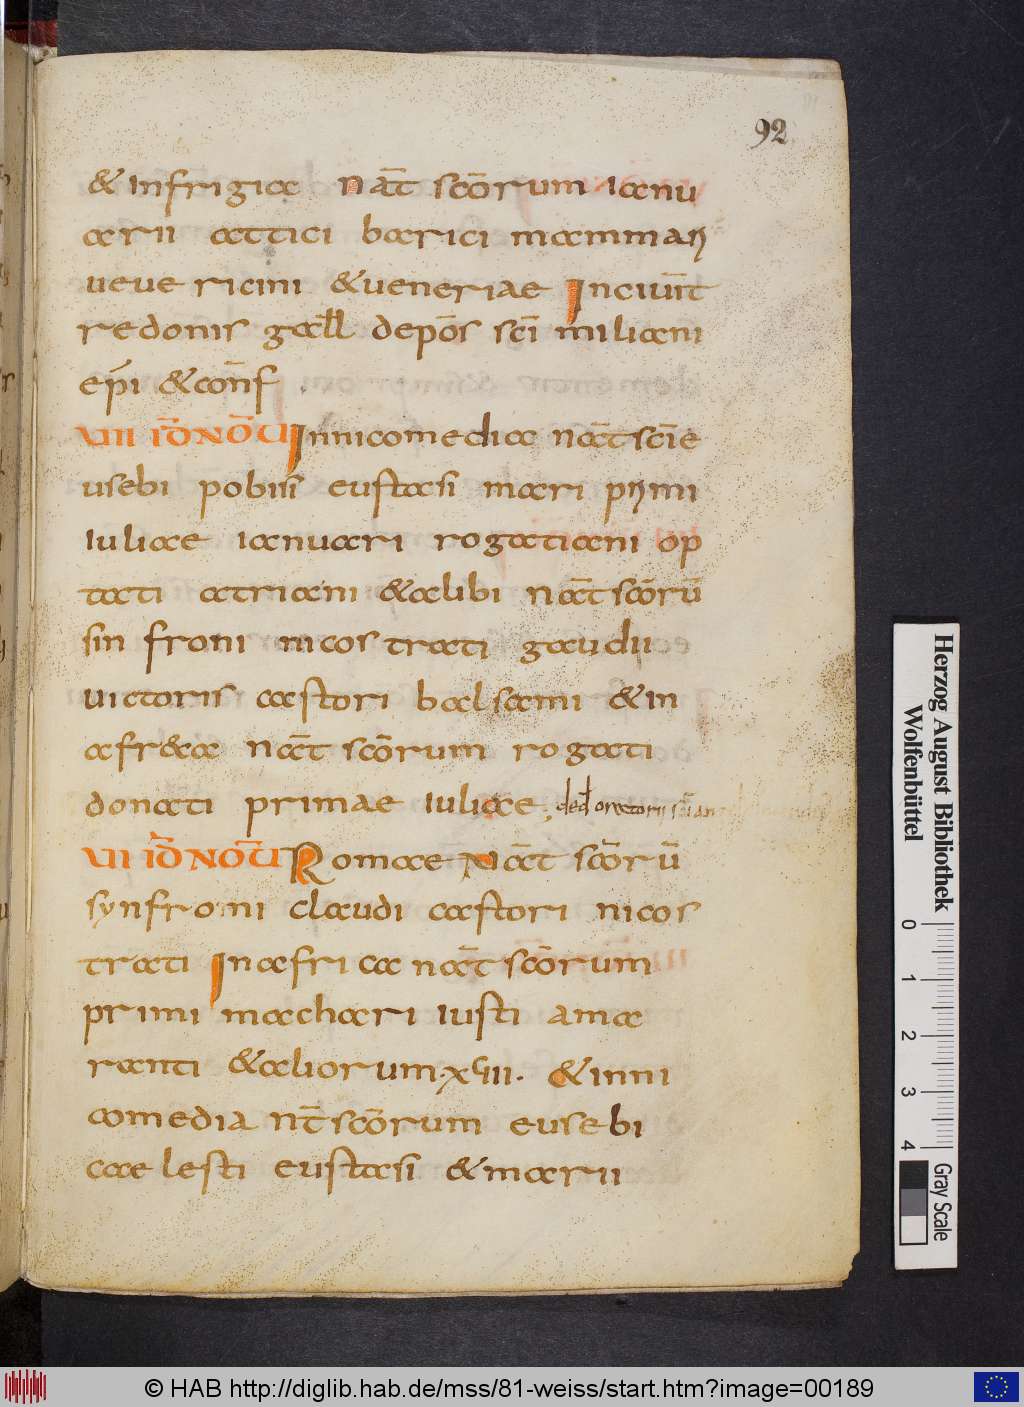 92
& infrigia nat̄ scōrum ianu
arii attici barici mammari
ueue ricini & ueneriae Inciuit̄
redonis gall depōs scī miliani
epī & conf̄
VIII ID̄ NOU̅ Innicomedia nat̄ scī e
usebi pobisi eustasi mari primi
iuliae ianuari rogatiani op
tati atriani & alibi nat̄ scōrū
sin froni nicostrati gaudii
uictoris castori balsami & in
afr&a nat̄ scōrum rogati
donati primae iuliae; ded oratorii scī
VII ID̄ NOU̅ Romae Nat̄ scōrū
synfroni claudi castori nicos
trati In africa nat̄ scōrum
primi machari iusti ama
ranti & aliorum·xviii· & inni
comedia nt̄ scōrum eusebi
caelesti eustasi & marii
Herzog August Bibliothek
Wolfenbüttel
0 1 2 3 4
Gray Scale
© HAB http://diglib.hab.de/mss/81-weiss/start.htm?image=00189